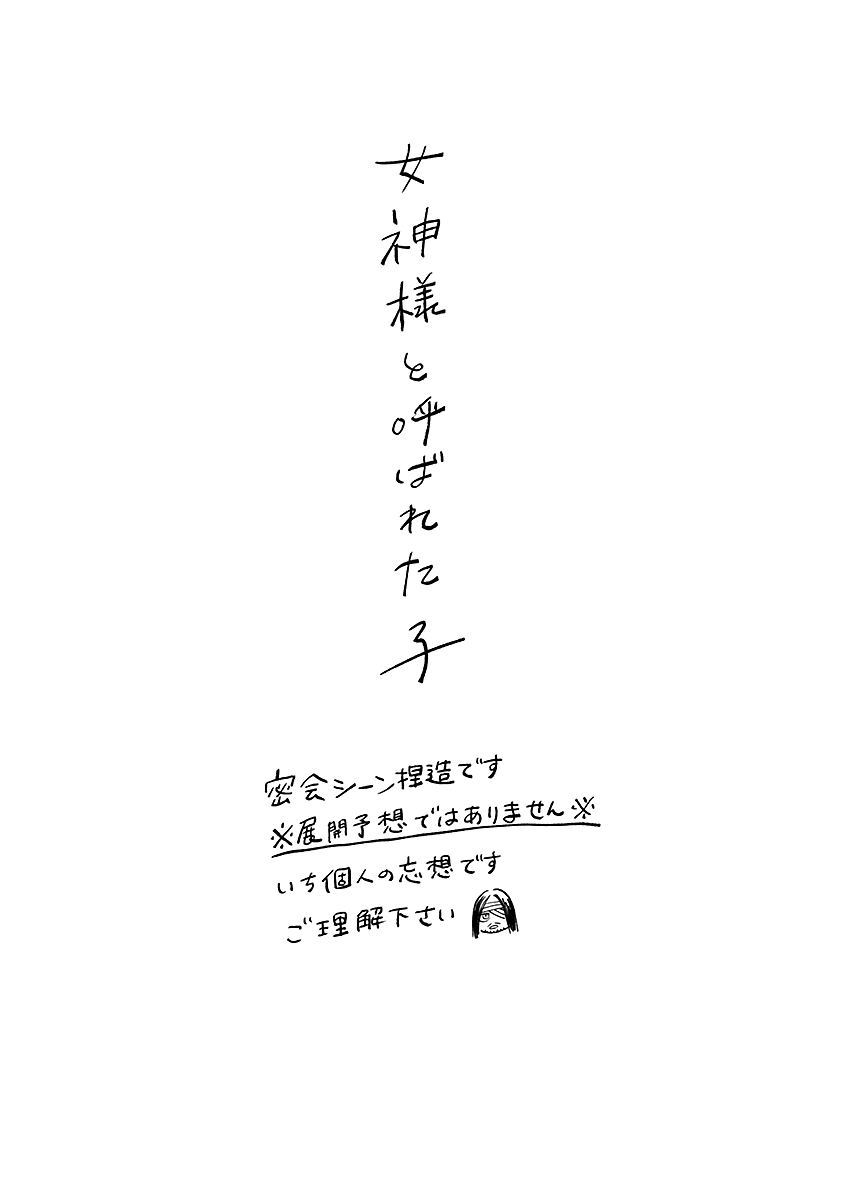 女神様と呼ばれた子
密会シーン捏造です
※展開予想ではありません※
いち個人の忘想です
ご理解下さい